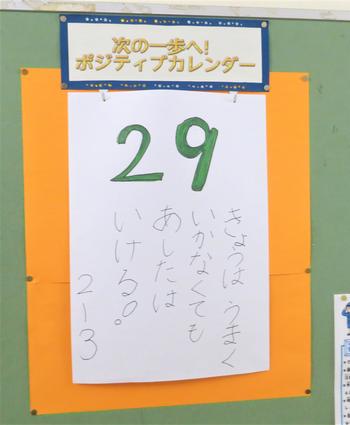 次の一歩へ!
ポジティブカレンダー
29
きょうは うまく
いかなくても
あしたは
いける。
2-3